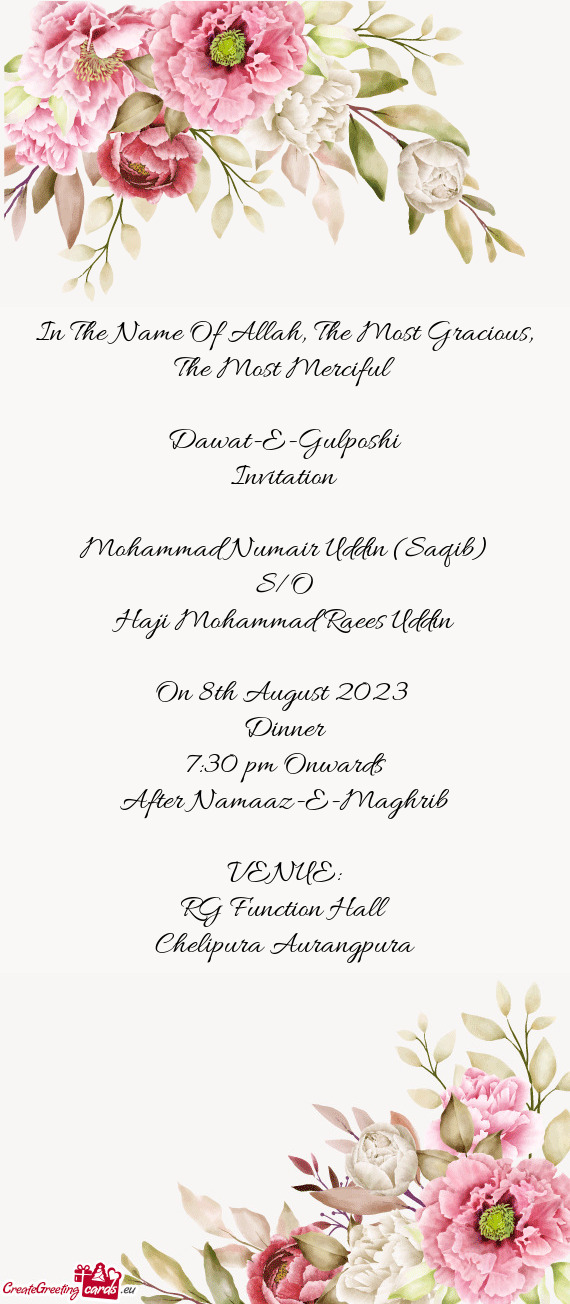 In The Name Of Allah, The Most Gracious,
The Most Merciful
Dawat-E-Gulposhi
Invitation
Mohammad Numair Uddin (Saqib)
S/O
Haji Mohammad Raees Uddin
On 8th August 2023
Dinner
7:30 pm Onwards
After Namaaz-E-Maghrib
VENUE:
RG Function Hall
Chelipura Aurangpura
CreateGreeting cards .eu